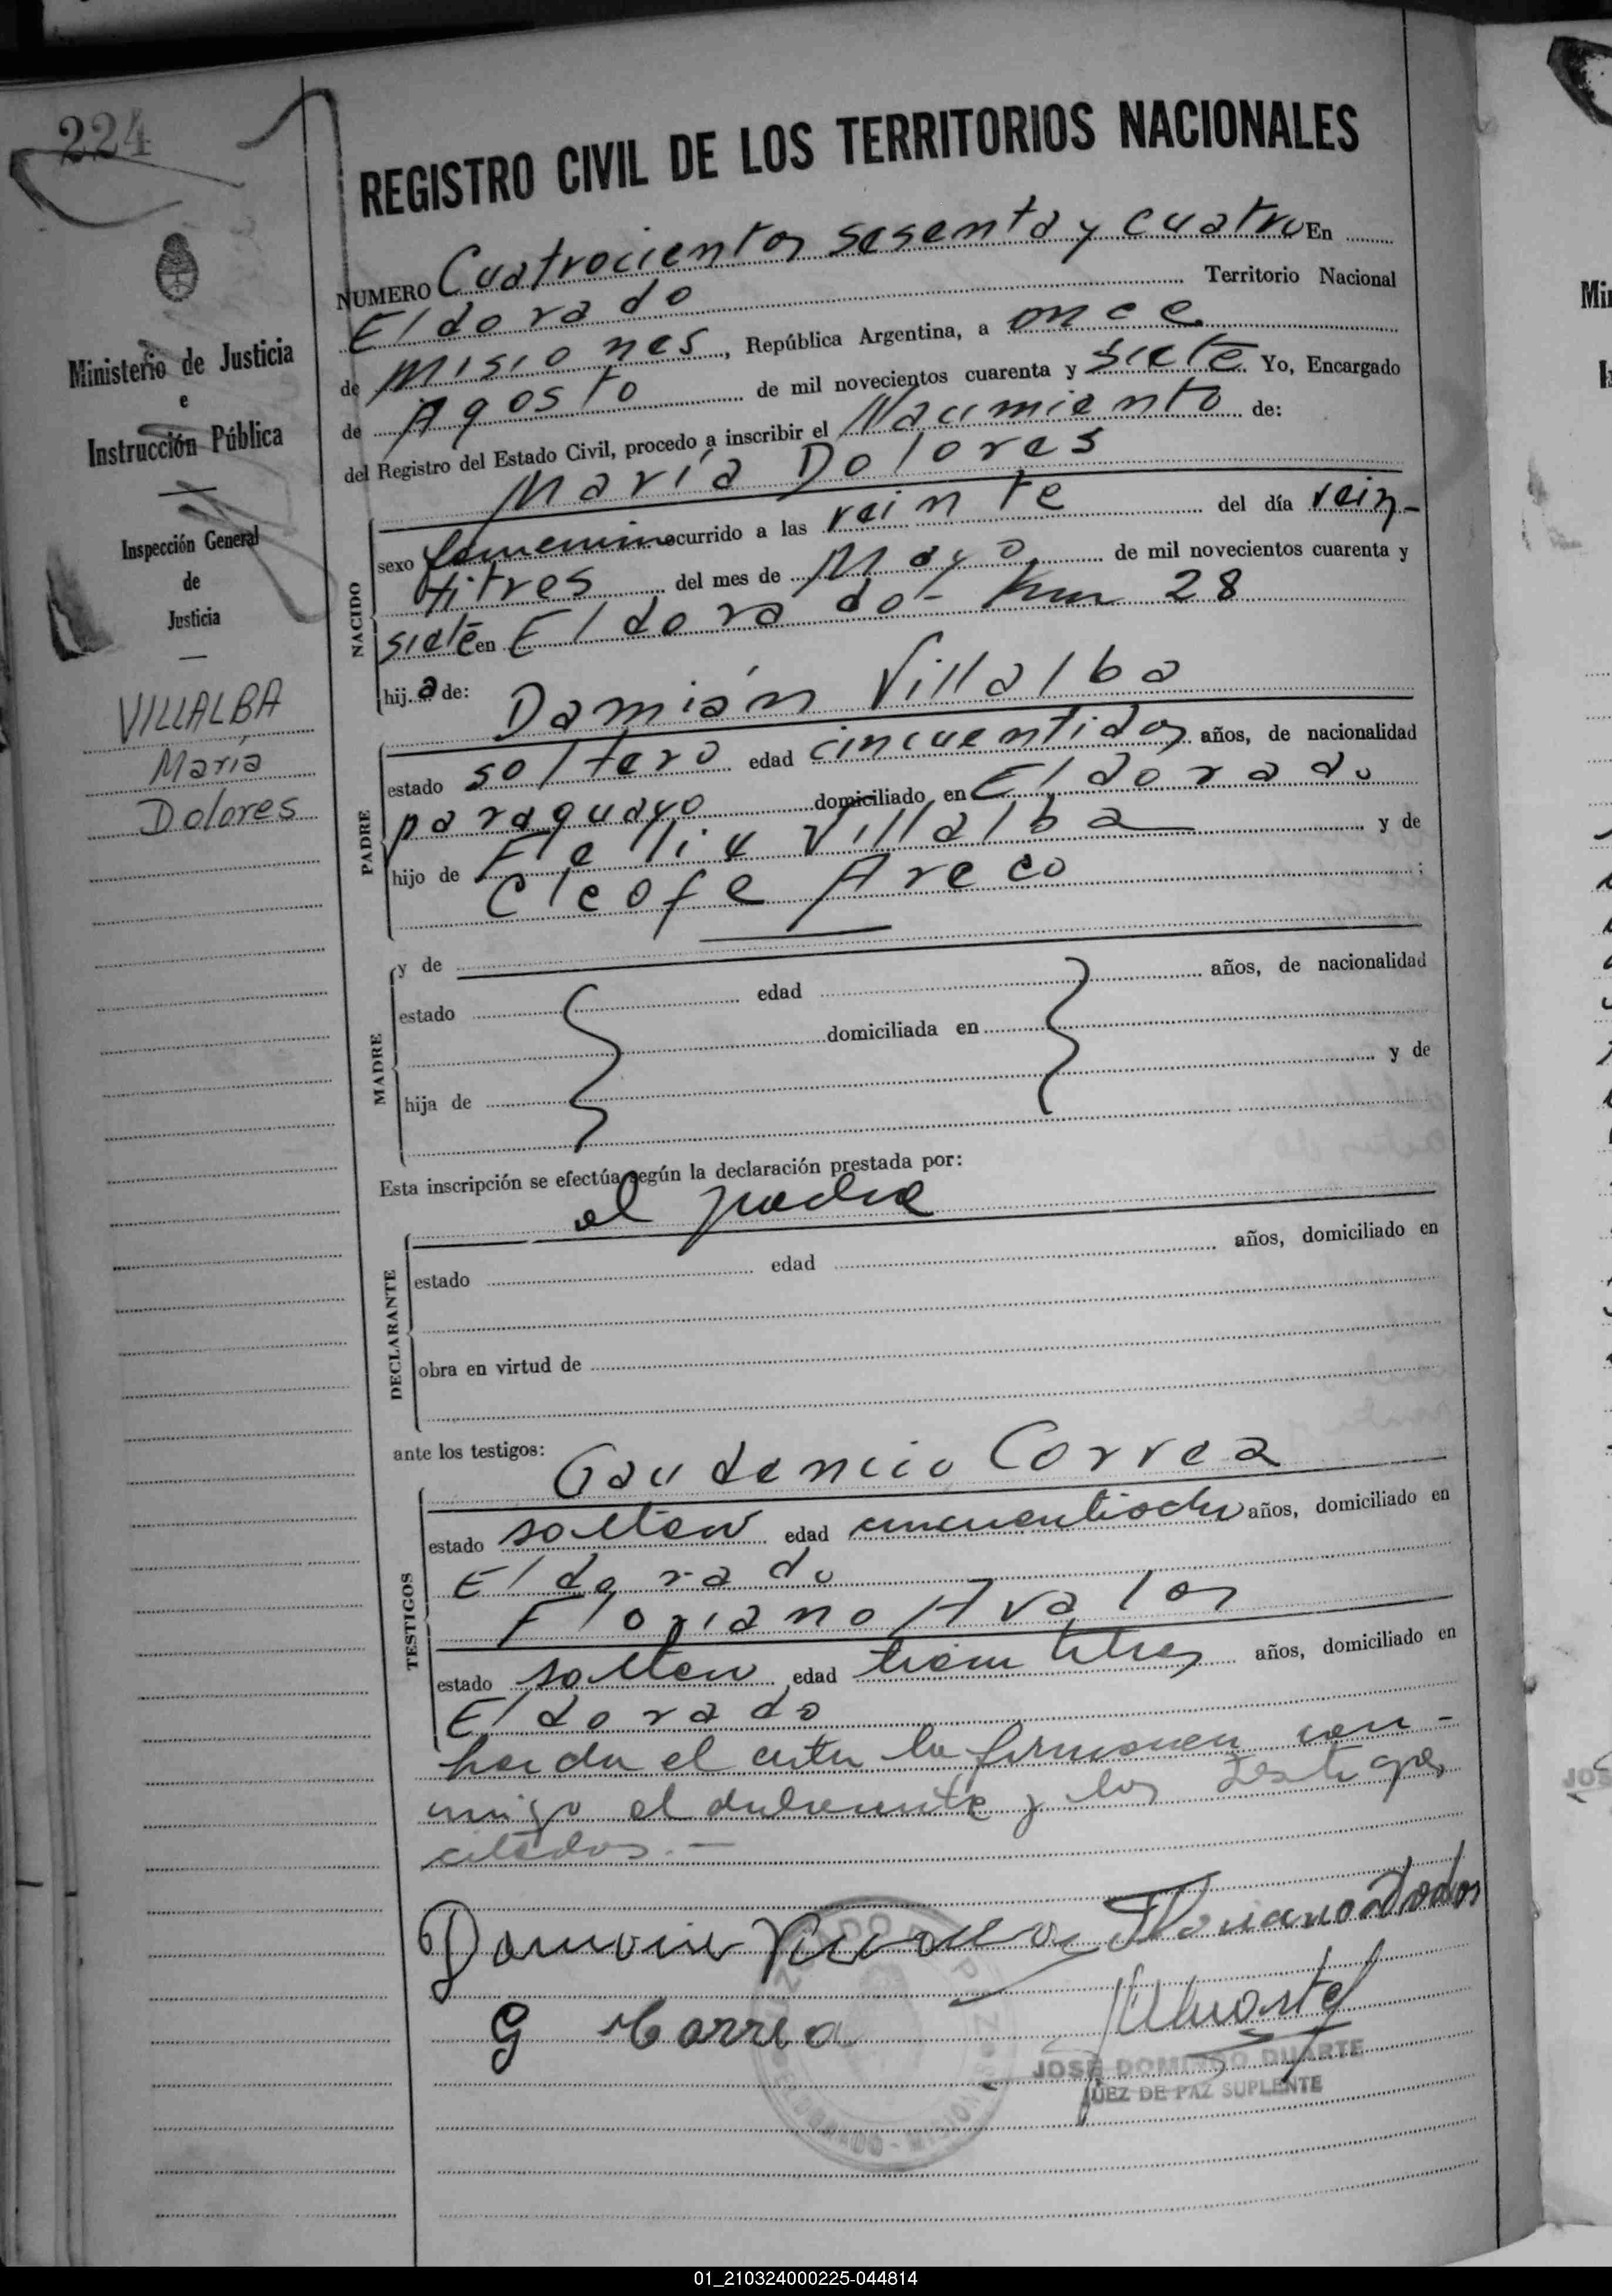 224
REGISTRO CIVIL DE LOS TERRITORIOS NACIONALES
NUMERO Cuatrocientos sesenta y cuatro En
Eldorado Territorio Nacional
de Misiones, República Argentina, a once
de Agosto de mil novecientos cuarenta y siete Yo, Encargado
del Registro del Estado Civil, procedo a inscribir el Nacimiento de:
María Dolores
Ministerio de Justicia
e
Instrucción Pública
Inspección General
de
Justicia
VILLALBA
María
Dolores
NACIDO
sexo femenino ocurrido a las veinte del día vein-
titres del mes de Mayo de mil novecientos cuarenta y
siete en Eldorado - Km 28
hij.a de: Damián Villalba
PADRE
estado soltero edad cincuentidos años, de nacionalidad
paraguayo domiciliado en Eldorado
hijo de Villalba y de
Cleofe Areco ;
MADRE
y de
estado edad años, de nacionalidad
domiciliada en
hija de y de
Esta inscripción se efectúa según la declaración prestada por:
el padre
DECLARANTE
estado edad años, domiciliado en
obra en virtud de
ante los testigos:
Gaudencio Correa
TESTIGOS
estado soltero edad cincuentiocho años, domiciliado en
Eldorado
Floriano Avalos
estado soltero edad treintitres años, domiciliado en
Eldorado
el acta la firmaron con-
migo el declarante y los testigos
citados. -
G Correa
JOSÉ DOMINGO DUARTE
JUEZ DE PAZ SUPLENTE
01_210324000225-044814